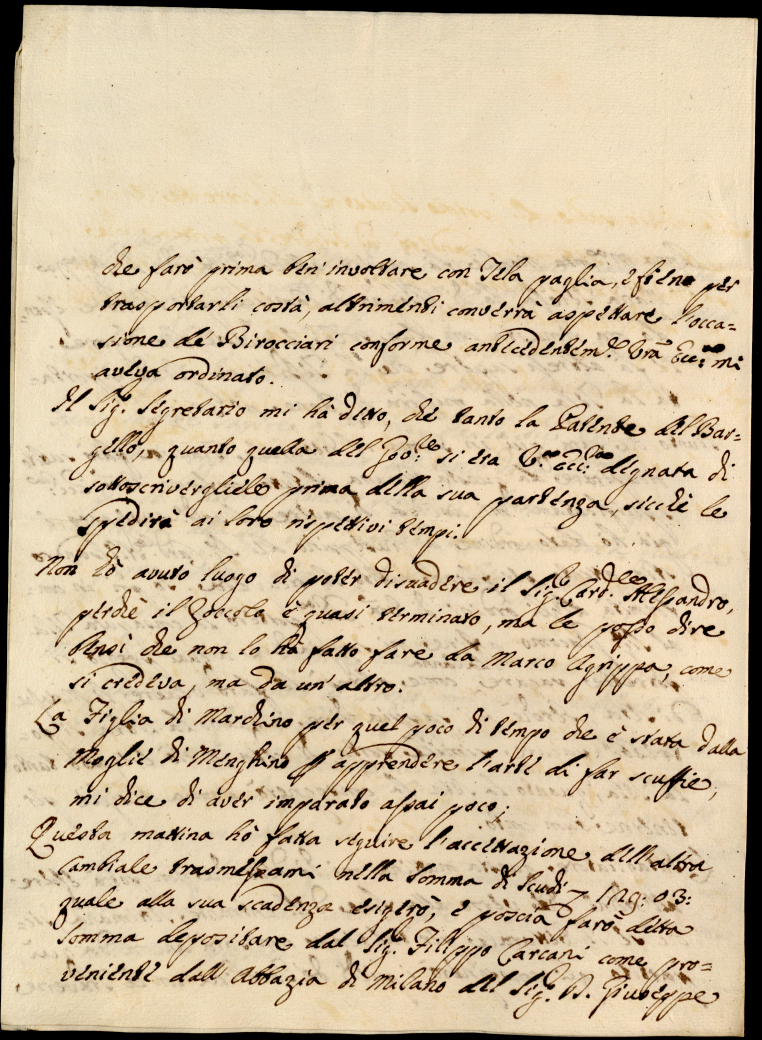 che farò prima ben'involtare con Tela paglia, e fieno per
trasportarli costà, altrimenti converrà aspettare l'occa=
sione de' Birocciari conforme antecedentem.e Vrā Ecc.za mi
aveva ordinato.
Il Sig.r Segretario mi hà detto, che tanto la Patente del Bar=
gello, quanto quella del Gov.re si era V.ra Ecc.za degnata di
sottoscrivergliele prima della sua partenza, sicchè le
spedirà ai loro rispettivi tempi.
Non hò avuto luogo di poter disuadere il Sig.r Card.le Alessandro,
perchè il Zoccolo è quasi terminato, ma le posso dire
bensi che non lo hà fatto fare da Marco Agrippa, come
si credeva, ma da un'altro.
La Figlia di Marchino per quel poco di tempo che è stata dalla
Moglie di Menghino p apprendere l'arte di far scuffie,
mi dice di aver imparato assai poco.
Questa mattina hò fatta seguire l'accettazione dell'altra
Cambiale trasmessami nella Somma di Scudi 129: 03:
quale alla sua scadenza esigerò, e poscia farò detta
Somma depositare dal Sig.r Filippo Carcani come pro=
veniente dall'Abbazia di Milano del Sig.r D. Giuseppe